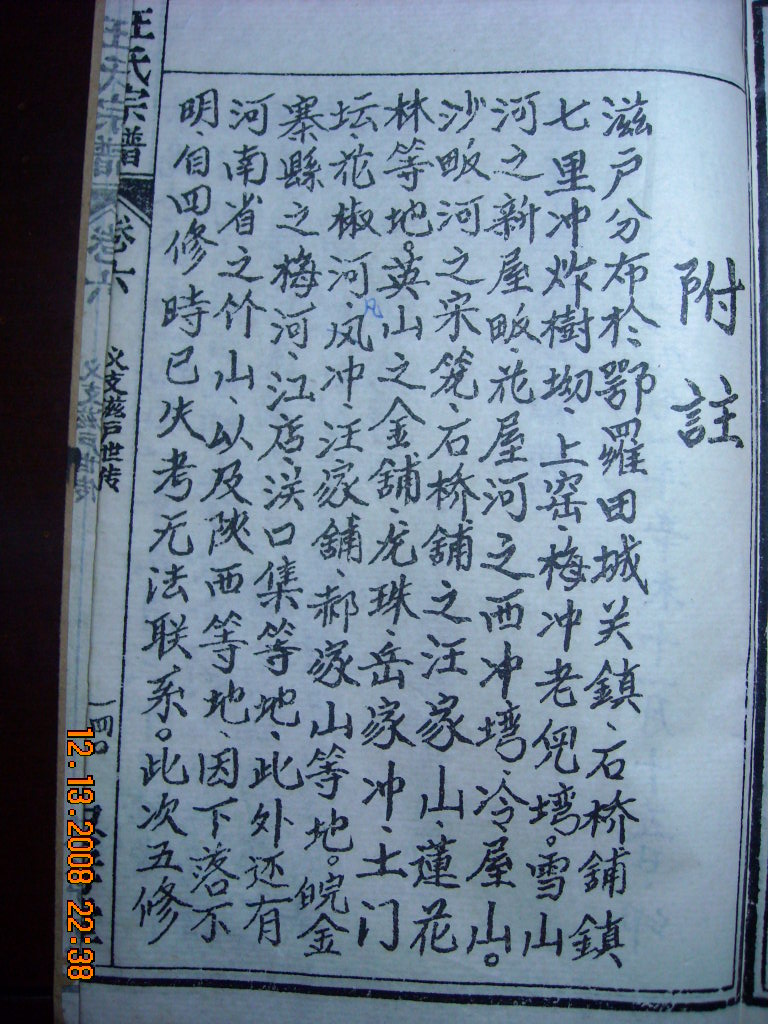 附註
滋戶分布於鄂羅田城关鎮、石桥舖鎮
七里冲炸樹坳、上窑、梅冲老倪塆。雪山
河之新屋畈、花屋河之西冲塆、冷屋山。
沙畈河之宋筦、石桥舖之汪家山、蓮花
林等地。英山之金舖、龙珠、岳家冲、土门
坛、花椒河、凤冲、汪家舖、郝家山等地。皖金
寨縣之梅河、江店、渓口集等地、此外还有
河南省之竹山、以及陕西等地、因下落不
明、自四修時已失考无法联系。此次五修
汪氏宗譜
卷六
义支滋戶世传
一四〇
12.13.2008 22:38